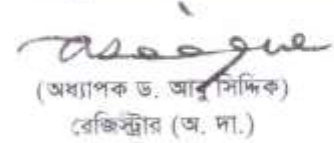 (অধ্যাপক ড. আবু সিদ্দিক)
রেজিস্ট্রার (অ. দা.)